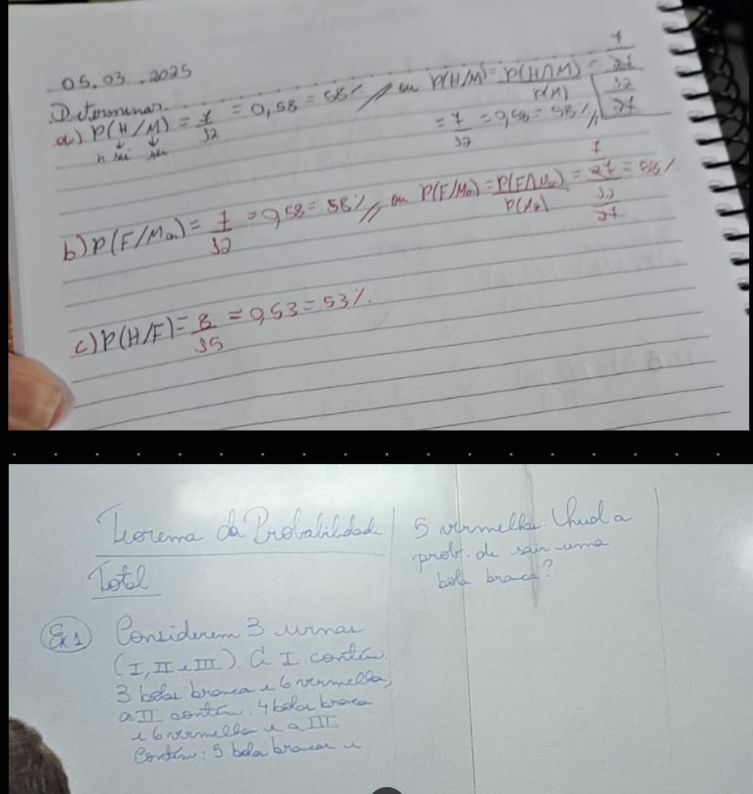 05.03.2025
Determinar.
a) P(H/M) = 7/12 = 0,58 = 58% // ou P(H/M) = P(H∩M)/P(M) = 7/27 / 12/27
n sei sei
= 7/12 = 0,58 = 58% //
b) P(F/Ma) = 7/12 = 0,58 = 58% // ou P(F/Ma) = P(F∩Ma)/P(Ma) = 7/27 / 12/27 = 58%
c) P(H/F) = 8/15 = 0,53 = 53%.
Teorema da Probabilidade
Total
Ex1 Considerem 3 urnas
(I, II e III). A I contém
3 bolas branca e 6 vermelha,
a II contém. 4 bola branca
e 6 vermelha e a III
contém: 5 bola branca e
5 vermelha. Qual a
prob. de sair uma
bola branca?